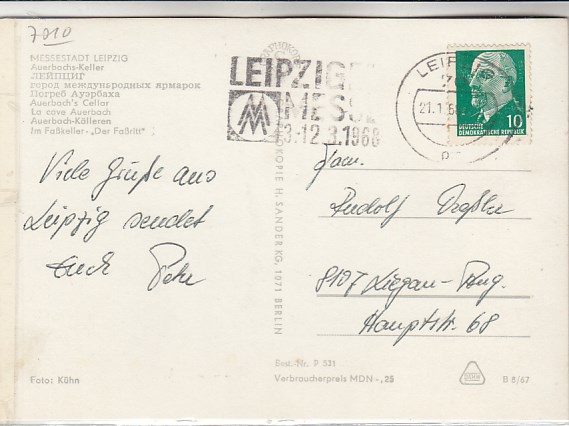 7010
MESSESTADT LEIPZIG
Auerbachs-Keller
ЛЕЙПЦИГ
город международных ярмарок
Погреб Ауэрбаха
Auerbach's Cellar
La cave Auerbach
Auerbach-Källeren
Im Faßkeller - „Der Faßritt"
LEIPZIGE
MESS
3.-12.3.1968
LEIP
21.1.6
DEUTSCHE
DEMOKRATISCHE REPUBLIK
10
Viele Grüße aus
Leipzig sendet
Euch Peter
Fam.
Rudolf
8107 Langen-Brg.
Hauptstr. 68
KOPIE H. SANDER KG, 1071 BERLIN
Best.-Nr. P 531
Verbraucherpreis MDN -,25
Foto: Kühn
B 8/67